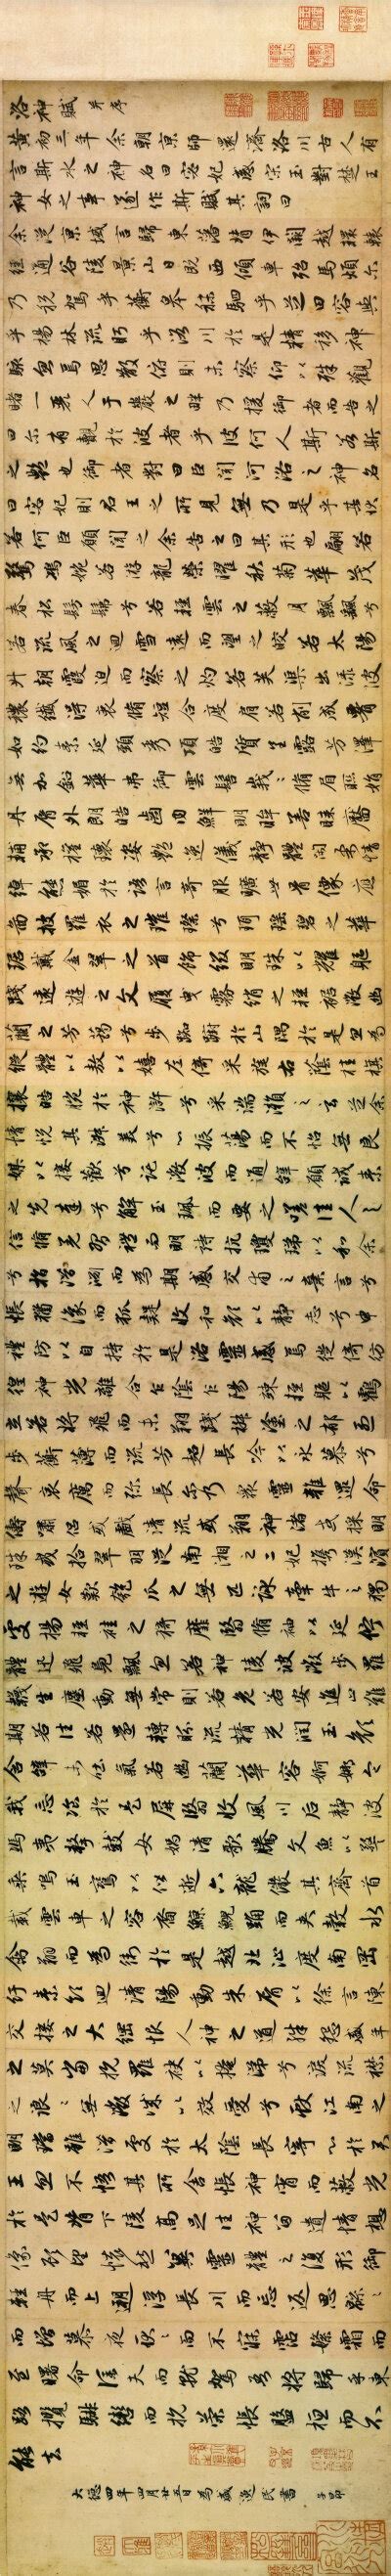 洛神賦 并序
黃初三年余朝京師還濟洛川古人有
言斯水之神名曰宓妃感宋玉對楚王
神女之事遂作斯賦其詞曰
余從京域言歸東藩背伊闕越轘轅
經通谷陵景山日既西傾車殆馬煩尒
乃稅駕乎蘅皋秣駟乎芝田容與
乎楊林流眄乎洛川於是精移神
駭忽焉思散俯則未察仰以殊觀
睹一麗人于巖之畔乃援御者而告之
曰尒有覿於彼者乎彼何人斯若斯
之艷也御者對曰臣聞河洛之神名
曰宓妃則君王之所見無乃是乎其狀
若何臣願聞之余告之曰其形也翩若
驚鴻婉若游龍榮曜秋菊華茂
春松髣髴兮若輕雲之蔽月飄颻兮
若流風之迴雪遠而望之皎若太陽
升朝霞迫而察之灼若芙渠出淥波
穠纖得衷脩短合度肩若削成署
如約素延頸秀項皓質呈露芳澤
無加鉛華弗御雲髻峩峩脩眉聯娟
丹脣外朗皓齒內鮮明眸善睞靨
輔承權瓌姿艷逸儀靜體閑柔情
綽態媚於語言奇服曠世骨像應
圖披羅衣之璀璨兮珥瑤碧之華
琚戴金翠之首飾綴明珠以耀軀
踐遠遊之文履曳霧綃之輕裾微幽
蘭之芳藹兮步踟躕於山隅於是忽焉
縱體以敖以嬉左倚采旄右蔭桂旗
攘皓腕於神滸兮采湍瀨之玄芝余
情悅其淑美兮心振蕩而不怡無良
媒以接歡兮託微波而通辭願誠素
之先達兮解玉珮而要之嗟佳人之
信脩羌習禮而明詩抗瓊珶以和余
兮指潛淵而為期感交甫之棄言兮
悵猶豫而狐疑收和顏以靜志兮申
禮防以自持於是洛靈感焉徙倚彷
徨神光離合乍陰乍陽竦輕軀以鶴
立若將飛而未翔踐椒塗之郁烈
步蘅薄而流芳超長吟以永慕兮
聲哀厲而彌長尒乃眾靈雜遝命
儔嘯侶或戲清流或翔神渚或採明
珠或拾翠羽從南湘之二妃携漢濱
之遊女歎匏瓜之無匹詠牽牛之獨
處揚輕袿之猗靡翳脩袖以延佇
體迅飛鳧飄忽若神陵波微步羅
襪生塵動無常則若危若安進止難
期若往若還轉眄流精光潤玉顏
含辭未吐氣若幽蘭華容婀娜令
我忘飡於是屏翳收風川后靜波
馮夷擊鼓女媧清歌騰文魚以警
乘鳴玉鸞以偕逝六龍儼其齊首
載雲車之容裔鯨鯢踊而夾轂水
禽翔而為衛於是越北沚度南岡
紆素領迴清陽動朱脣以徐言陳
交接之大綱恨人神之道殊怨盛年
之莫當抗羅袂以掩涕兮淚流襟
之浪浪無微誠以效愛兮獻江南之
明璫雖潛處於太陰長寄心於君
王忽不悟其所舍悵神宵而蔽光
於是背下陵高足往神留遺情想
像顧望懷愁冀靈體之復形御
輕舟而上遡浮長川而忘返思綿綿
而增慕夜耿耿而不寐霑繁霜而
至曙命僕夫而就駕吾將歸乎東
路攬騑轡而抗策悵盤桓而不
能去
大德四年四月廿五日為盛逸民書 子昂